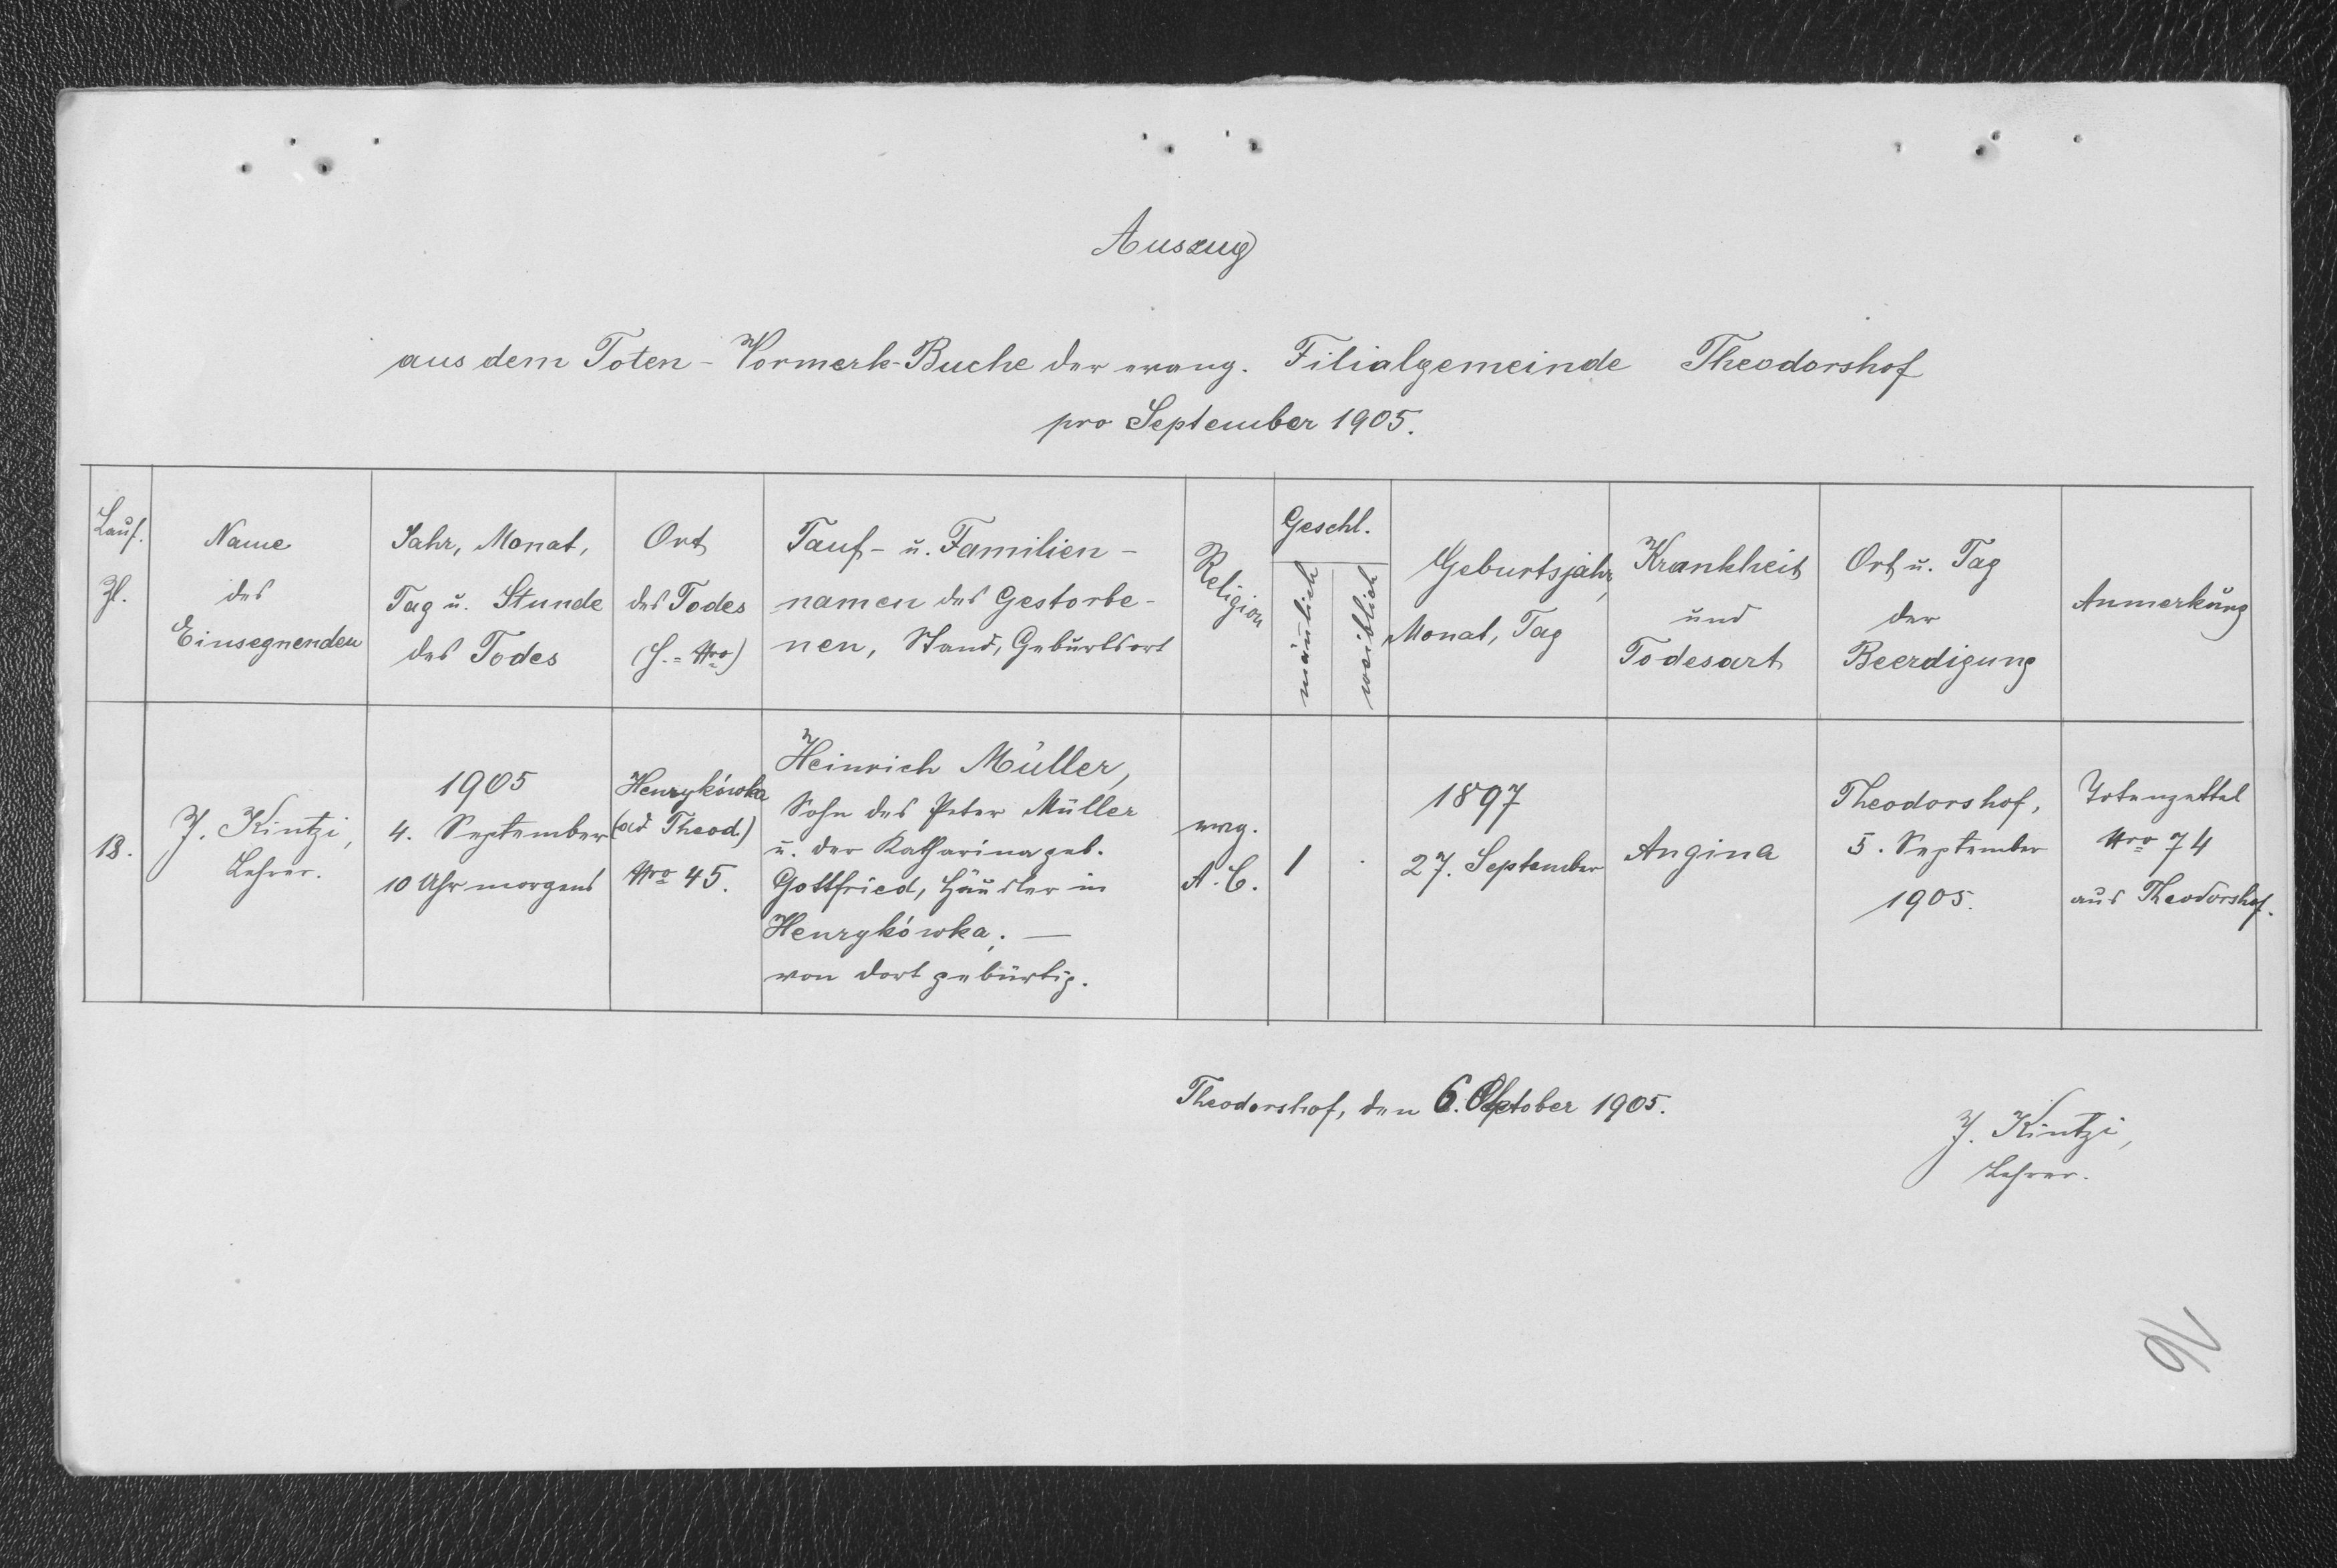 Auszug
aus dem Toten-Vormerk-Buche der evang. Filialgemeinde Theodorshof
pro September 1905.
Lauf.
Zl.
Name
des
Einsegnenden
Jahr, Monat,
Tag u. Stunde
des Todes
Ort
des Todes
(H.=Nro)
Tauf- u. Familien-
namen des Gestorbe-
nen, Stand, Geburtsort
Religion
Geschl.
männlich
weiblich
Geburtsjahr,
Monat, Tag
Krankheit
und
Todesart
Ort u. Tag
der
Beerdigung
Anmerkung
18.
J. Kintzi,
Lehrer.
1905
4. September
10 Uhr morgens
Henrykówka
(ad Theod.)
Nro 45.
Heinrich Müller,
Sohn des Peter Müller
u. der Katharina geb.
Gottfried, Häusler in
Henrykówka; —
von dort gebürtig.
evg.
A. C.
1
.
1897
27. September
Angina
Theodorshof,
5. September
1905.
Totenzettel
Nro 74
aus Theodorshof.
Theodorshof, den 6. Oktober 1905.
J. Kintzi,
Lehrer.